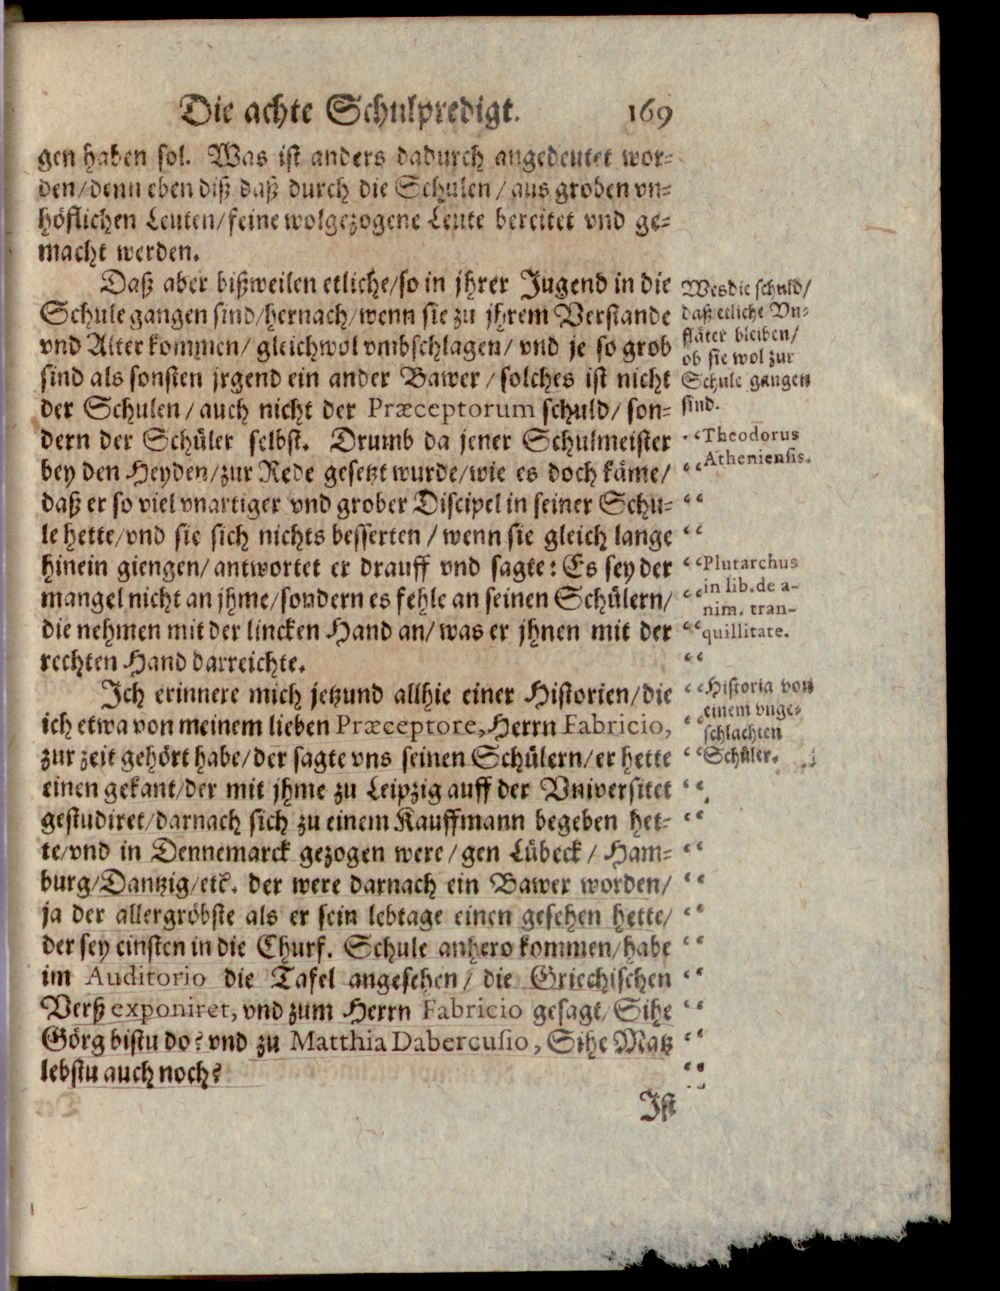 Die achte Schulpredigt. 169
gen haben sol. Was ist anders dadurch angedeutet wor-
den/denn eben diß daß durch die Schulen/aus groben vn-
höflichen Leuten/feine wolgezogene Leute bereitet vnd ge-
macht werden.
Daß aber bißweilen etliche/so in jhrer Jugend in die
Schule gangen sind/hernach/wenn sie zu jhrem Verstande
vnd Alter kommen/ gleichwol vmbschlagen/ vnd je so grob
sind als sonsten jrgend ein ander Bawer/solches ist nicht
der Schulen/auch nicht der Præceptorum schuld/son-
dern der Schüler selbst. Drumb da jener Schulmeister
bey den Heyden/zur Rede gesetzt wurde/wie es doch käme/
daß er so viel vnartiger vnd grober Discipel in seiner Schu-
le hette/vnd sie sich nichts besserten/wenn sie gleich lange
hinein giengen/antwortet er drauff vnd sagte: Es sey der
mangel nicht an jhme/sondern es fehle an seinen Schülern/
die nehmen mit der lincken Hand an/was er jhnen mit der
rechten Hand darreichte.
Ich erinnere mich jetzund allhie einer Historien/die
ich etwa von meinem lieben Præceptore, Herrn Fabricio,
zur zeit gehört habe/der sagte vns seinen Schülern/er hette
einen gekant/der mit jhme zu Leipzig auff der Vniversitet
gestudiret/darnach sich zu einem Kauffmann begeben het-
te/vnd in Dennemarck gezogen were/gen Lübeck/ Ham-
burg/Dantzig/etc. der were darnach ein Bawer worden/
ja der allergröbste als er sein lebtage einen gesehen hette/
der sey einsten in die Churf. Schule anhero kommen/habe
im Auditorio die Tafel angesehen/ die Griechischen
Verß exponiret, vnd zum Herrn Fabricio gesagt/Sihe
Görg bistu do? vnd zu Matthia Dabercusio, Sihe Matz
lebstu auch noch?
Ist
Wes die schuld/
daß etliche Vn-
fläter bleiben/
ob sie wol zur
Schule gangen
sind.
Theodorus
Atheniensis.
Plutarchus
in lib. de a-
nim. tran-
quillitate.
Historia von
einem vnge-
schlachten
Schüler.